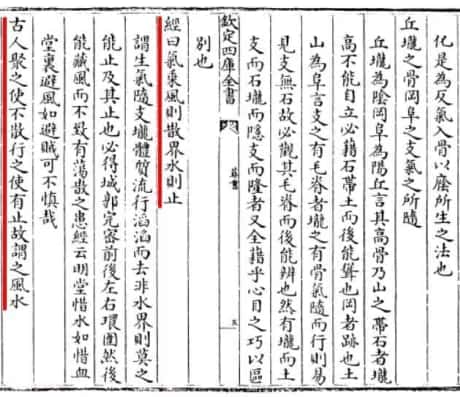 化是為反氣入骨以廕所生之法也
丘壠之骨岡阜之支氣之所隨
丘壠為陰岡阜為陽丘言其高骨乃山之帶石者壠
高不能自立必藉石帶土而後能聳也岡者跡也土
山為阜言支之有毛脊者壠之有骨氣隨而行則易
見支無石故必觀其毛脊而後能辨也然有壠而土
支而石壠而隱支而隆者又全藉乎心目之巧以區
欽定四庫全書
葬書
五
別也
經曰氣乘風則散界水則止
謂生氣隨支壠體質流行滔滔而去非水界則莫之
能止及其止也必得城郭完密前後左右環圍然後
能藏風而不致有蕩散之患經云明堂惜水如惜血
堂裏避風如避賊可不慎哉
古人聚之使不散行之使有止故謂之風水